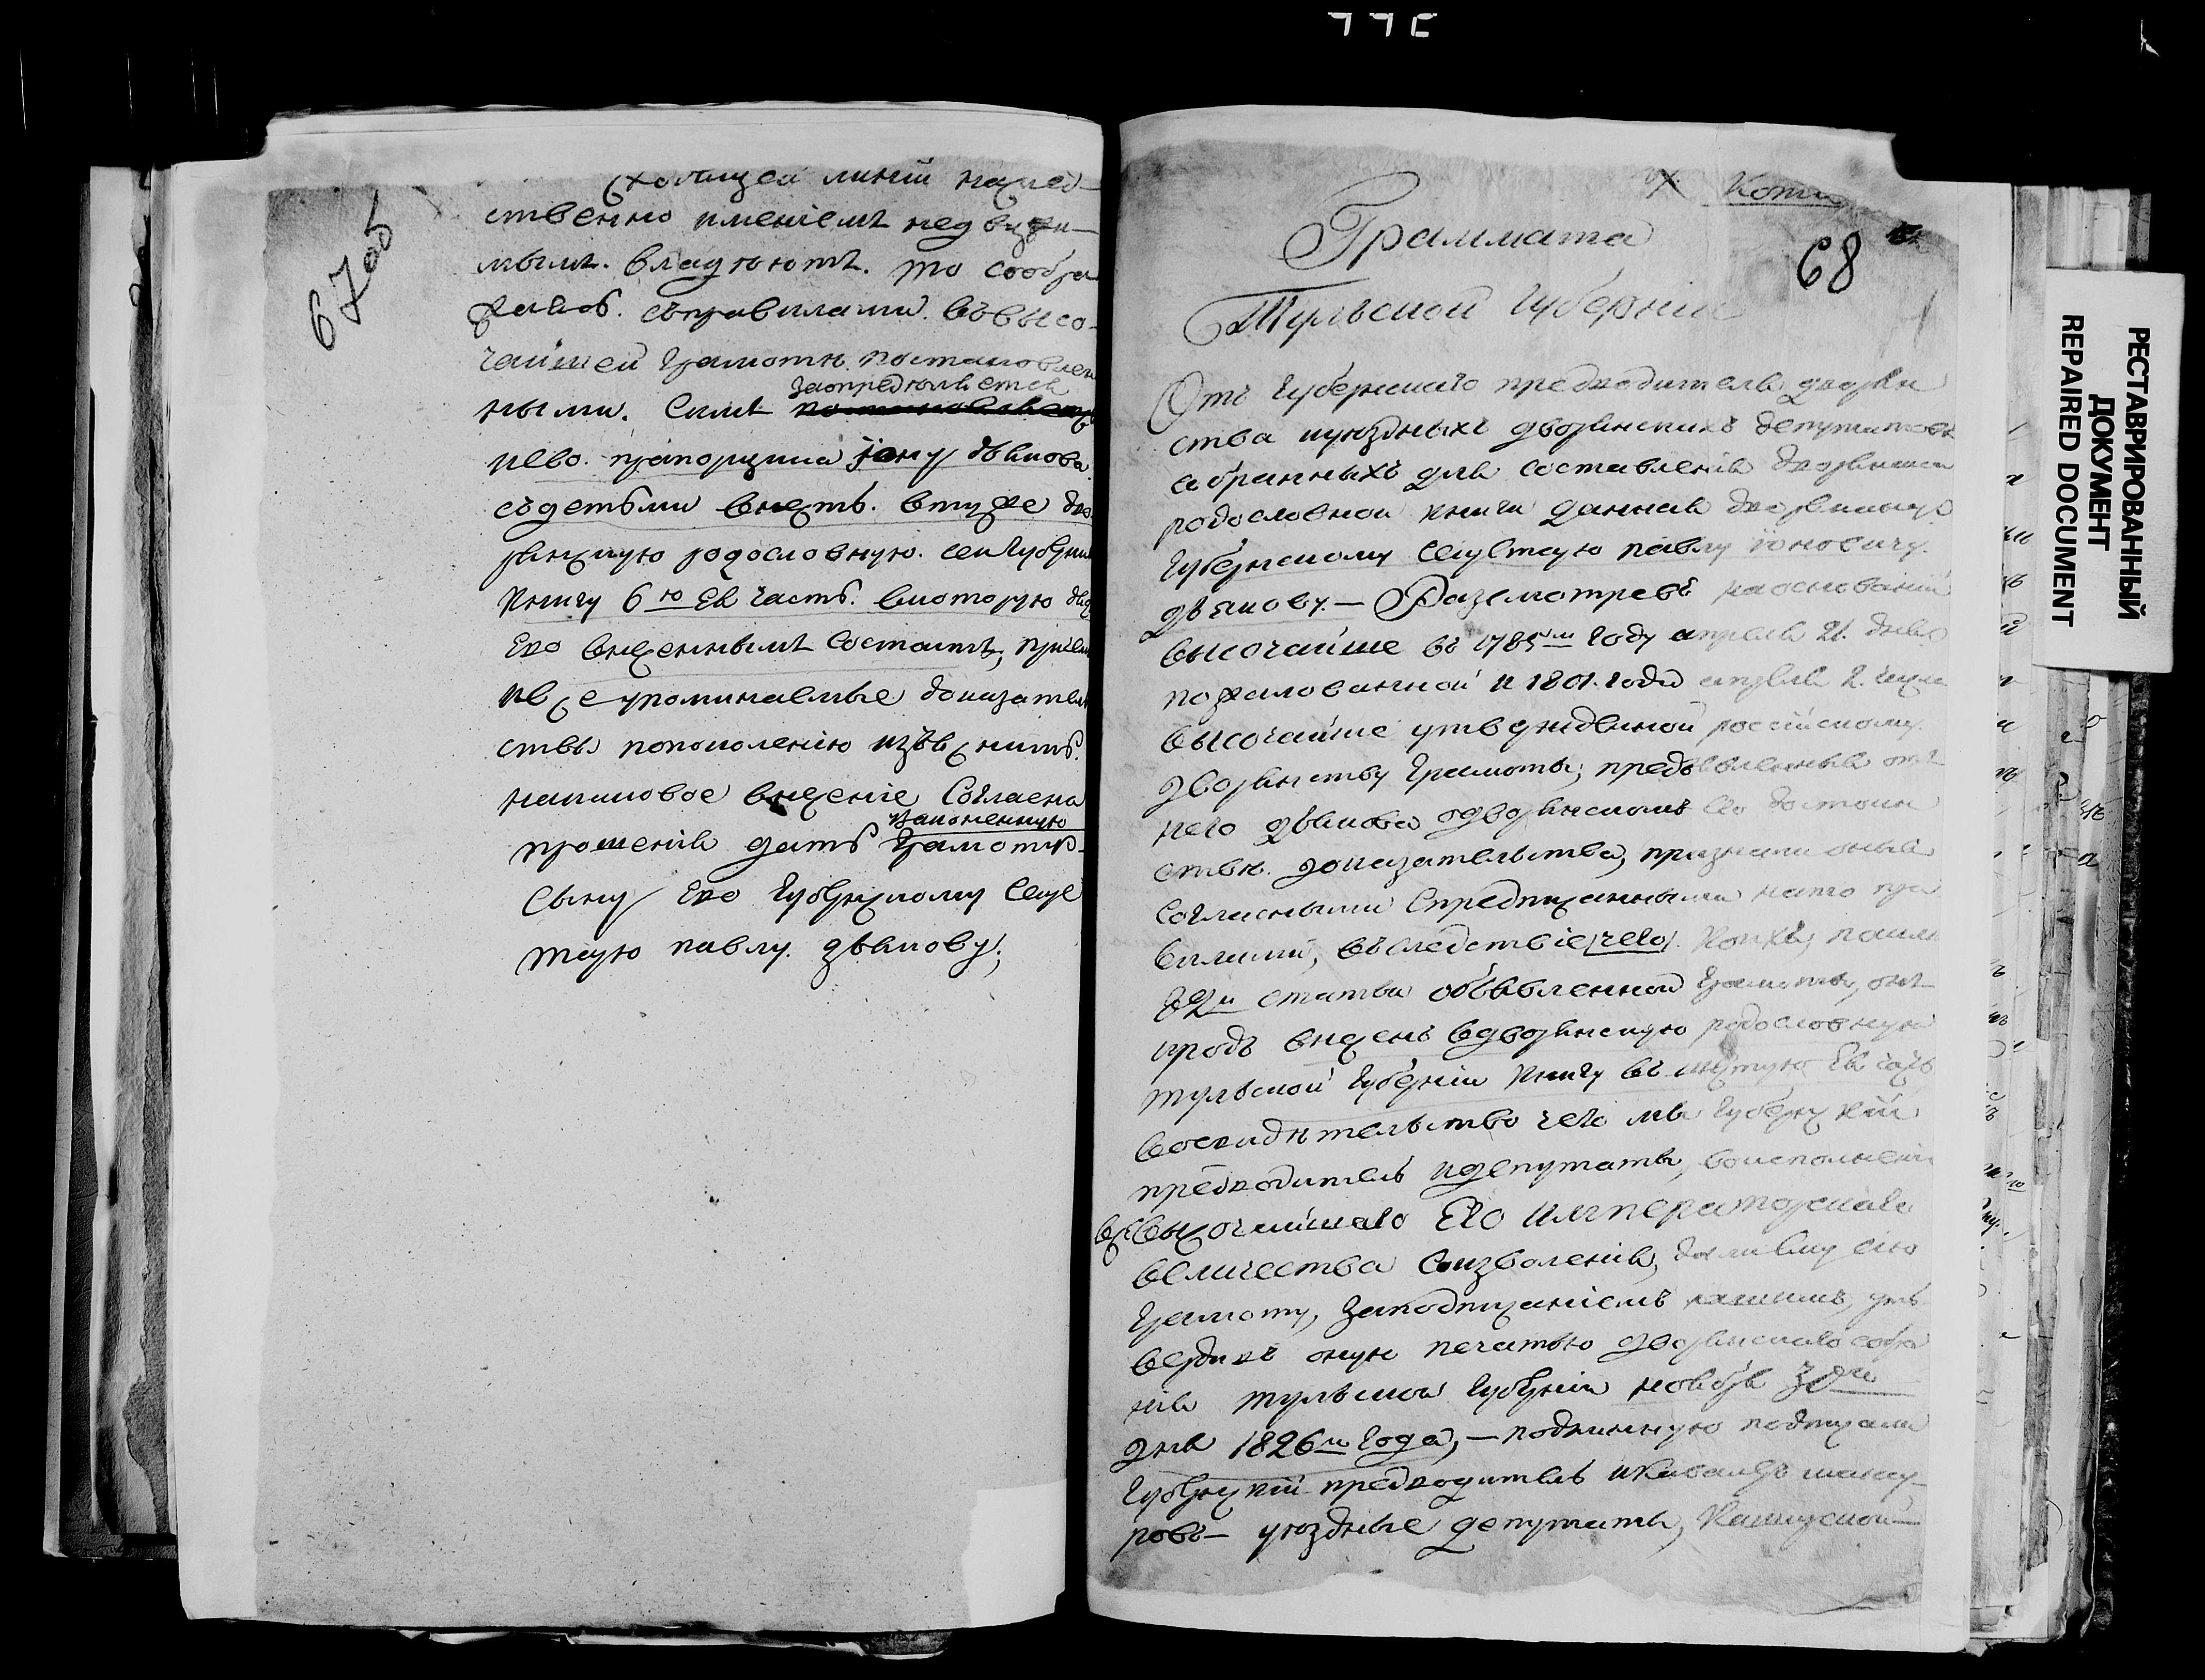 67 об
сходящей линіи наслед-
ственно именіемъ недвижи-
мымъ. владеютъ. то сообра-
жаясь. съправилами. въвысо-
чайшей грамотѣ постановлен
ными. Симъ заопределяется
чево. прапорщика іону дьякова
съдетьми внесть. втужъ дво
рянскую родословную. сей губерніи
книгу 6ю Ея часть. вкоторую
Его внесеннымъ состоитъ,
все упоминаемые доказатель
ствы попоколенію изъяснить.
накаковое внесеніе Согласно
прошенія дать законенную грамоту
Сыну Его губернскому Секре
тарю павлу. дьякову;
Копия
Граммата
68
Тульской Губерніи
Отъ Губернскаго предводителя дворян
ства иуездныхъ дворянскихъ депутатовъ
собранныхъ для составленія дворянской
родословной книги данная дворянину
Губернскому Секретарю павлу іоновичу
дьякову. — Разсмотревъ наоснованіи
высочайше въ 1785мъ году апреля 21. дня
пожалованной и 1801. года апреля 2. числа
высочайше утвержденной россійскому
дворянству грамоты, предъявленныя отъ
него дьякова одворянскомъ его достоин
ствѣ. доказательства, признали оныя
Согласными Спредписанными нато пра
вилами, въследствіе чего
статьи объявленной грамоты, онъ
иродъ внесенъ вдворянскую родословную
тульской губерніи книгу въ шестую Ея часть
восвидетельство чего мы губернскій
предводитель идепутаты, воисполненіе
высочайшаго Его Императорскаго
величества Соизволенія, дали Ему сію
грамоту, заподписаніемъ нашимъ, утъ
вердивъ оную печатью дворянскаго собра
нія тульской губерніи ноября 30го
дня 1826го года, — подлинную подписали
губернскій предводитель икавалеръ
ровъ — уездные депутаты, Каширской —
РЕСТАВРИРОВАННЫЙ
ДОКУМЕНТ
REPAIRED DOCUMENT